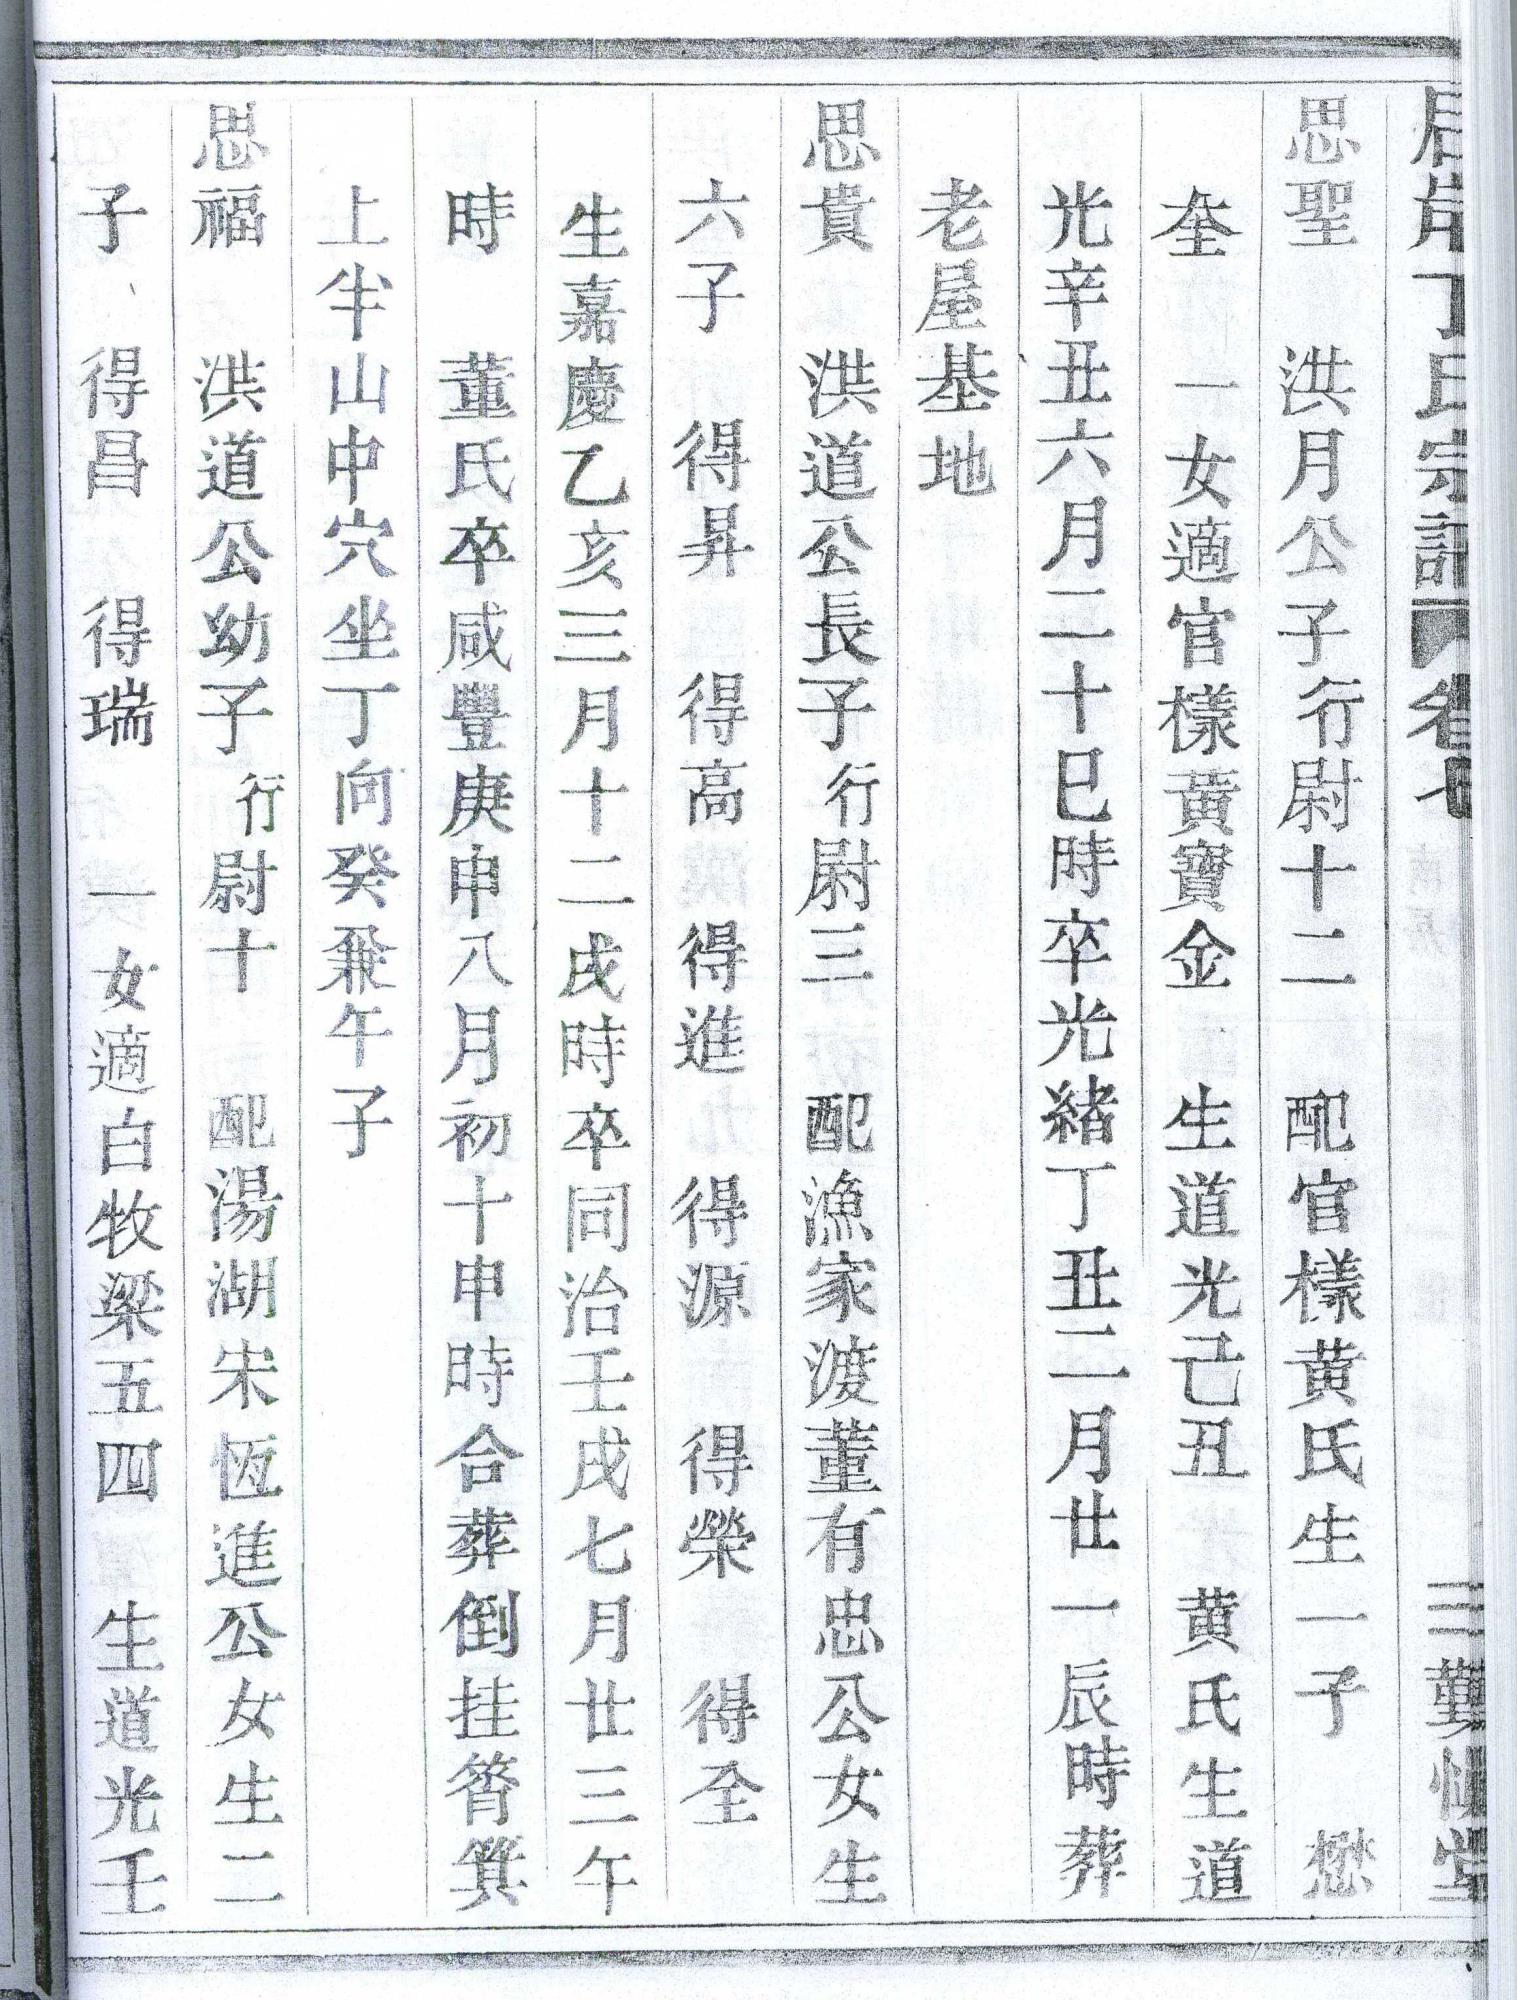 丁氏宗譜 卷七 三 勤慎堂
思聖 洪月公子行尉十二 配官樣黄氏生一子 懋
奎 一女適官樣黃寶金 生道光己丑 黄氏生道
光辛丑六月二十巳時卒光緒丁丑二月廿一辰時葬
老屋基地
思貴 洪道公長子行尉三 配漁家渡董有忠公女生
六子 得昇 得高 得進 得源 得榮 得全
生嘉慶乙亥三月十二戌時卒同治壬戌七月廿三午
時 董氏卒咸豐庚申八月初十申時合葬倒挂筲箕
上半山中穴坐丁向癸兼午子
思福 洪道公幼子行尉十 配湯湖宋恆進公女生二
子 得昌 得瑞 一女適白牧梁五四 生道光壬